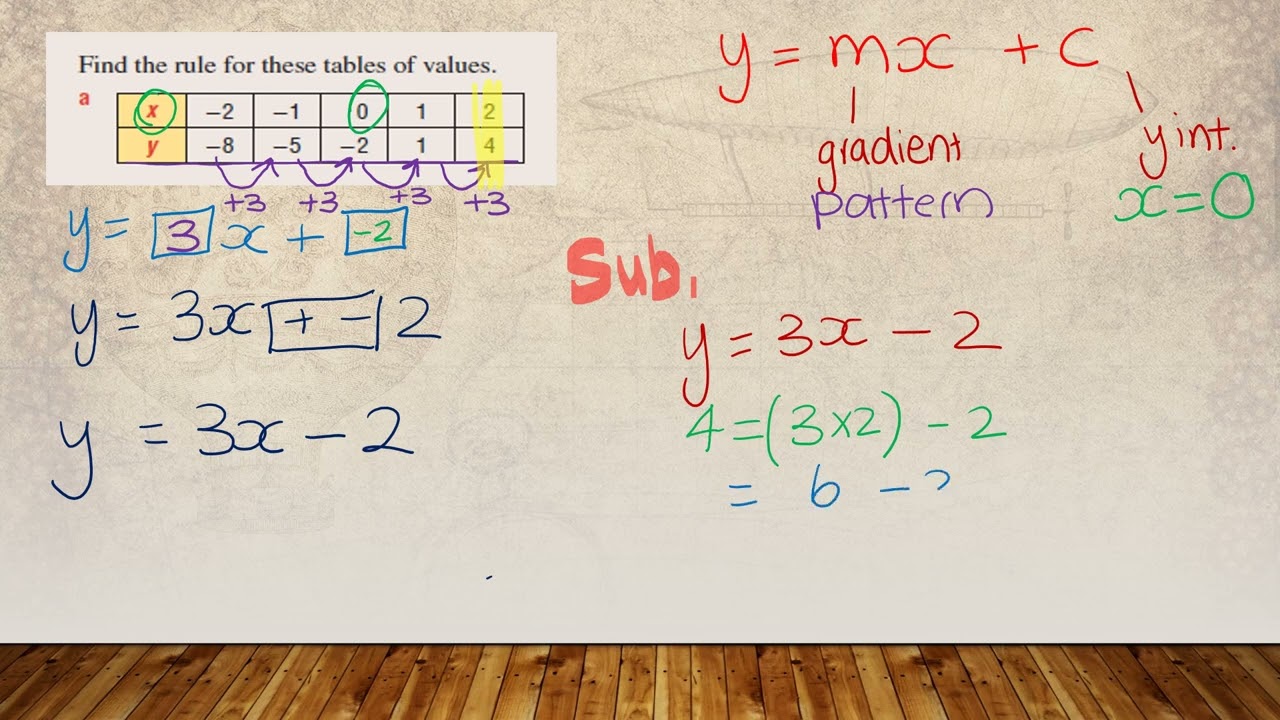 Find the rule for these tables of values.
a
x −2 −1 0 1 2
y −8 −5 −2 1 4
+3 +3 +3 +3
y = 3 x + -2
y = 3x + - 2
y = 3x - 2
y = mx + c
gradient
y int.
pattern
x = 0
Sub.
y = 3x - 2
4 = (3×2) - 2
= 6 -